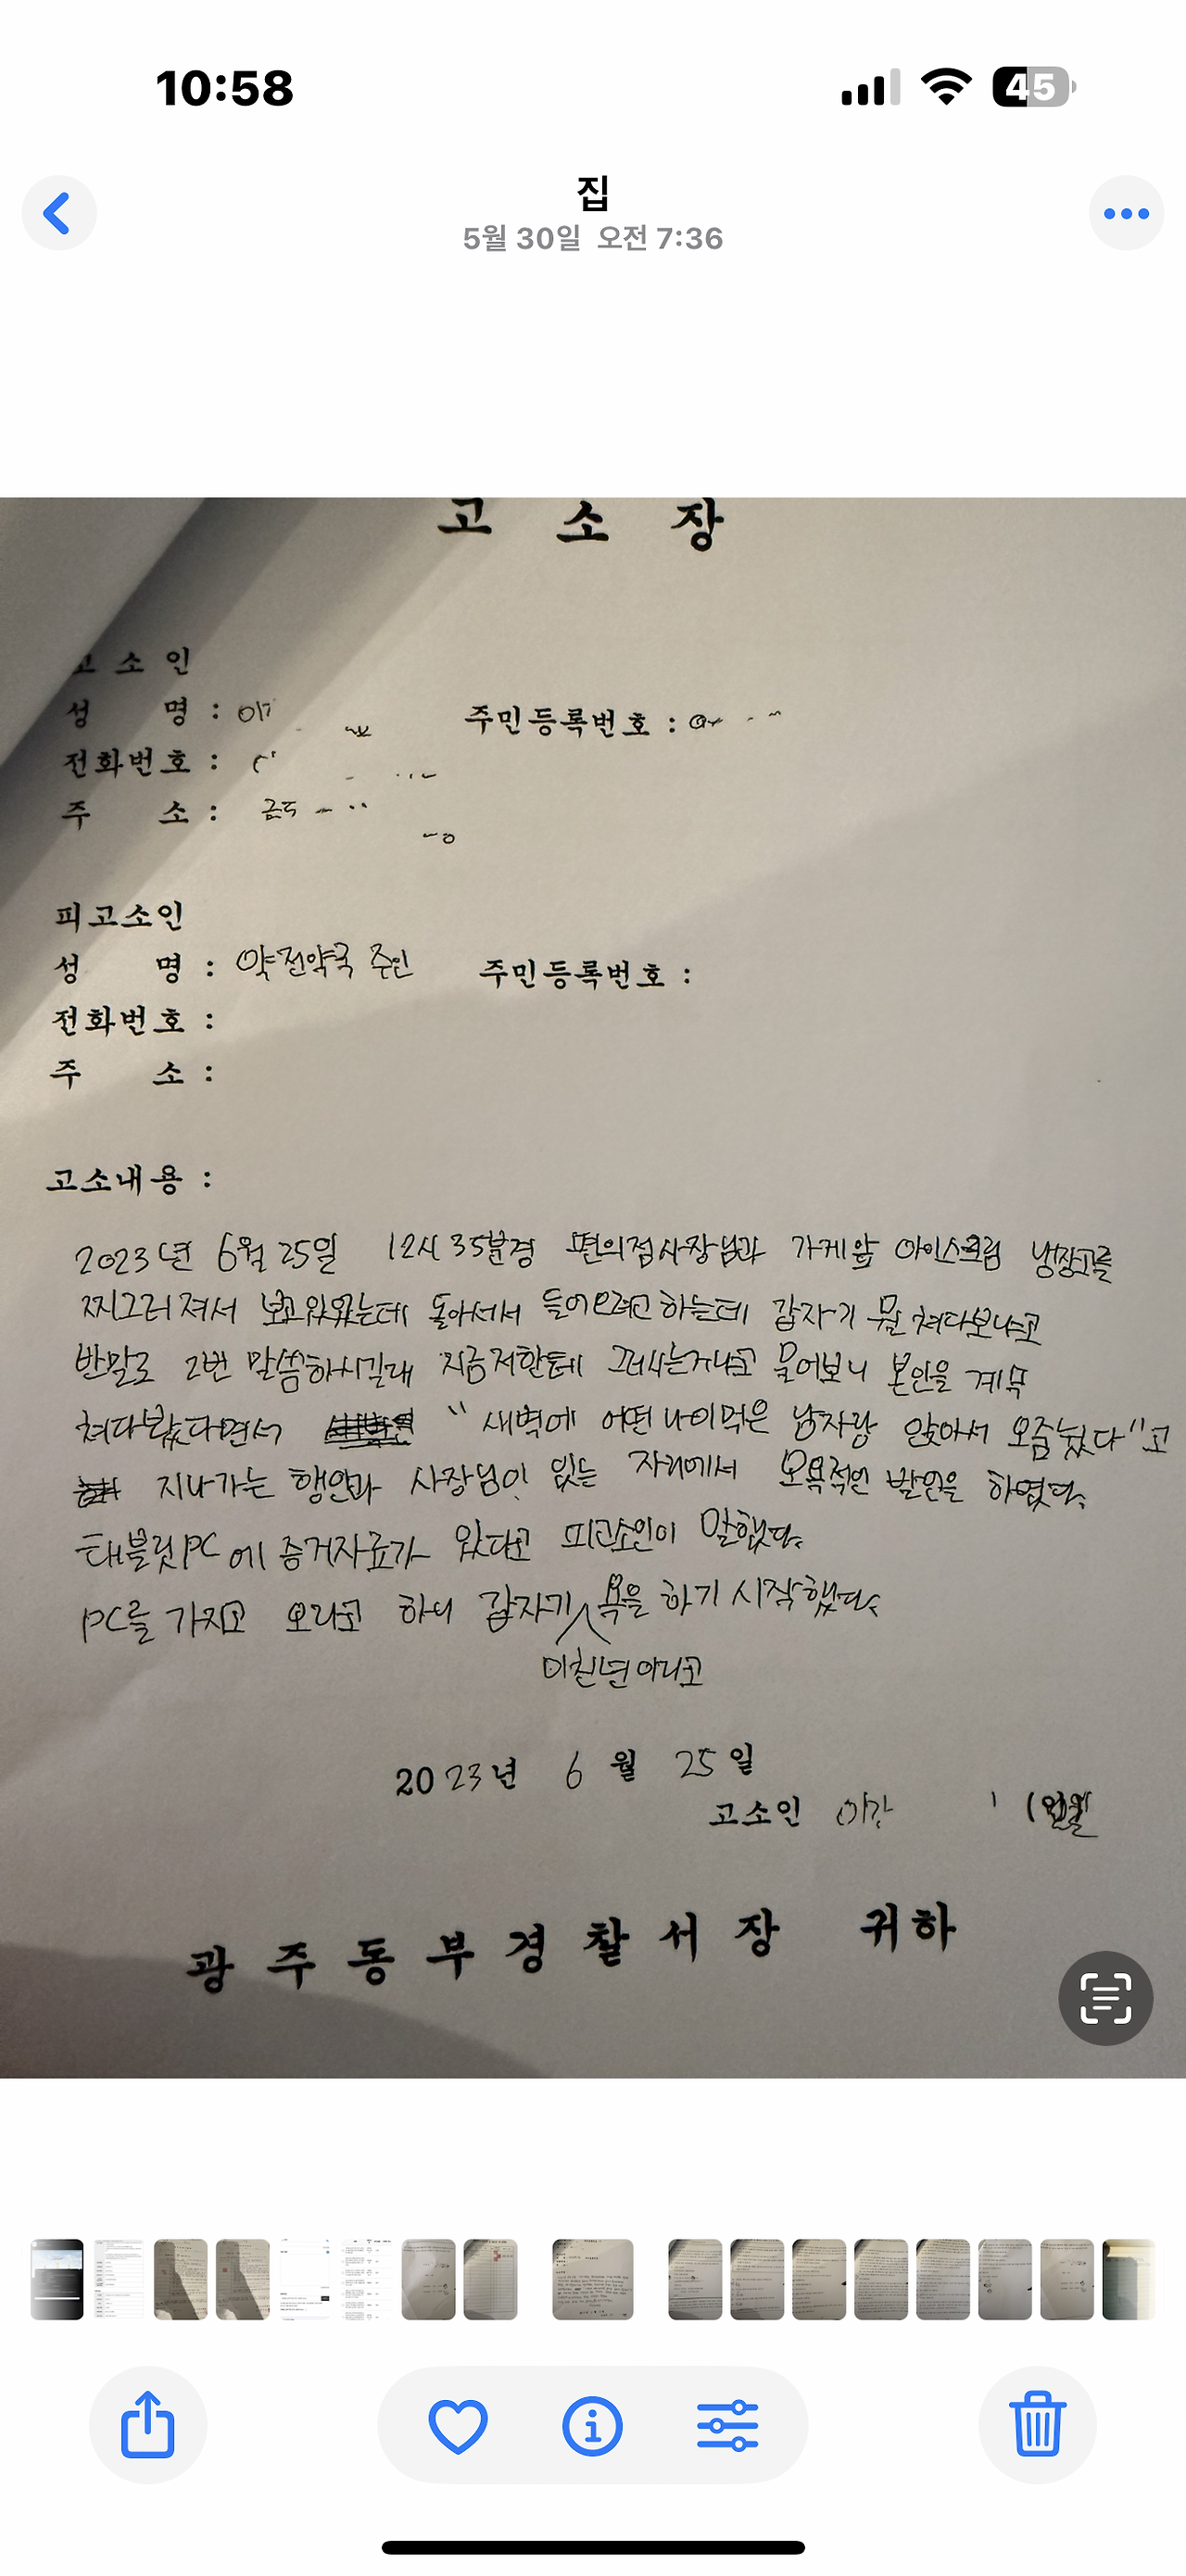 10:58
45
집
5월 30일 오전 7:36
고 소 장
고 소 인
성 명 : 주민등록번호 :
전화번호 :
주 소 :
피고소인
성 명 : 약전약국 주인 주민등록번호 :
전화번호 :
주 소 :
고소내용 :
2023년 6월 25일 12시 35분경 편의점사장님과 가게앞 아이스크림 냉장고를
찌그러져서 보고있었는데 돌아서서 들어오려고 하는데 갑자기 뭘 쳐다보냐고
반말로 2번 말씀하시길래 지금저한테 그러시는거냐고 물어보니 본인을 계속
쳐다봤다면서 "새벽에 어떤 나이먹은 남자랑 앉아서 오줌눴다"고
지나가는 행인과 사장님이 있는 자리에서 모욕적인 발언을 하였다.
태블릿PC에 증거자료가 있다고 피고소인이 말했다.
PC를 가지고 오라고 하니 갑자기 욕을 하기 시작했다.
미친년아니고
2023년 6월 25일
고소인
광 주 동 부 경 찰 서 장 귀하